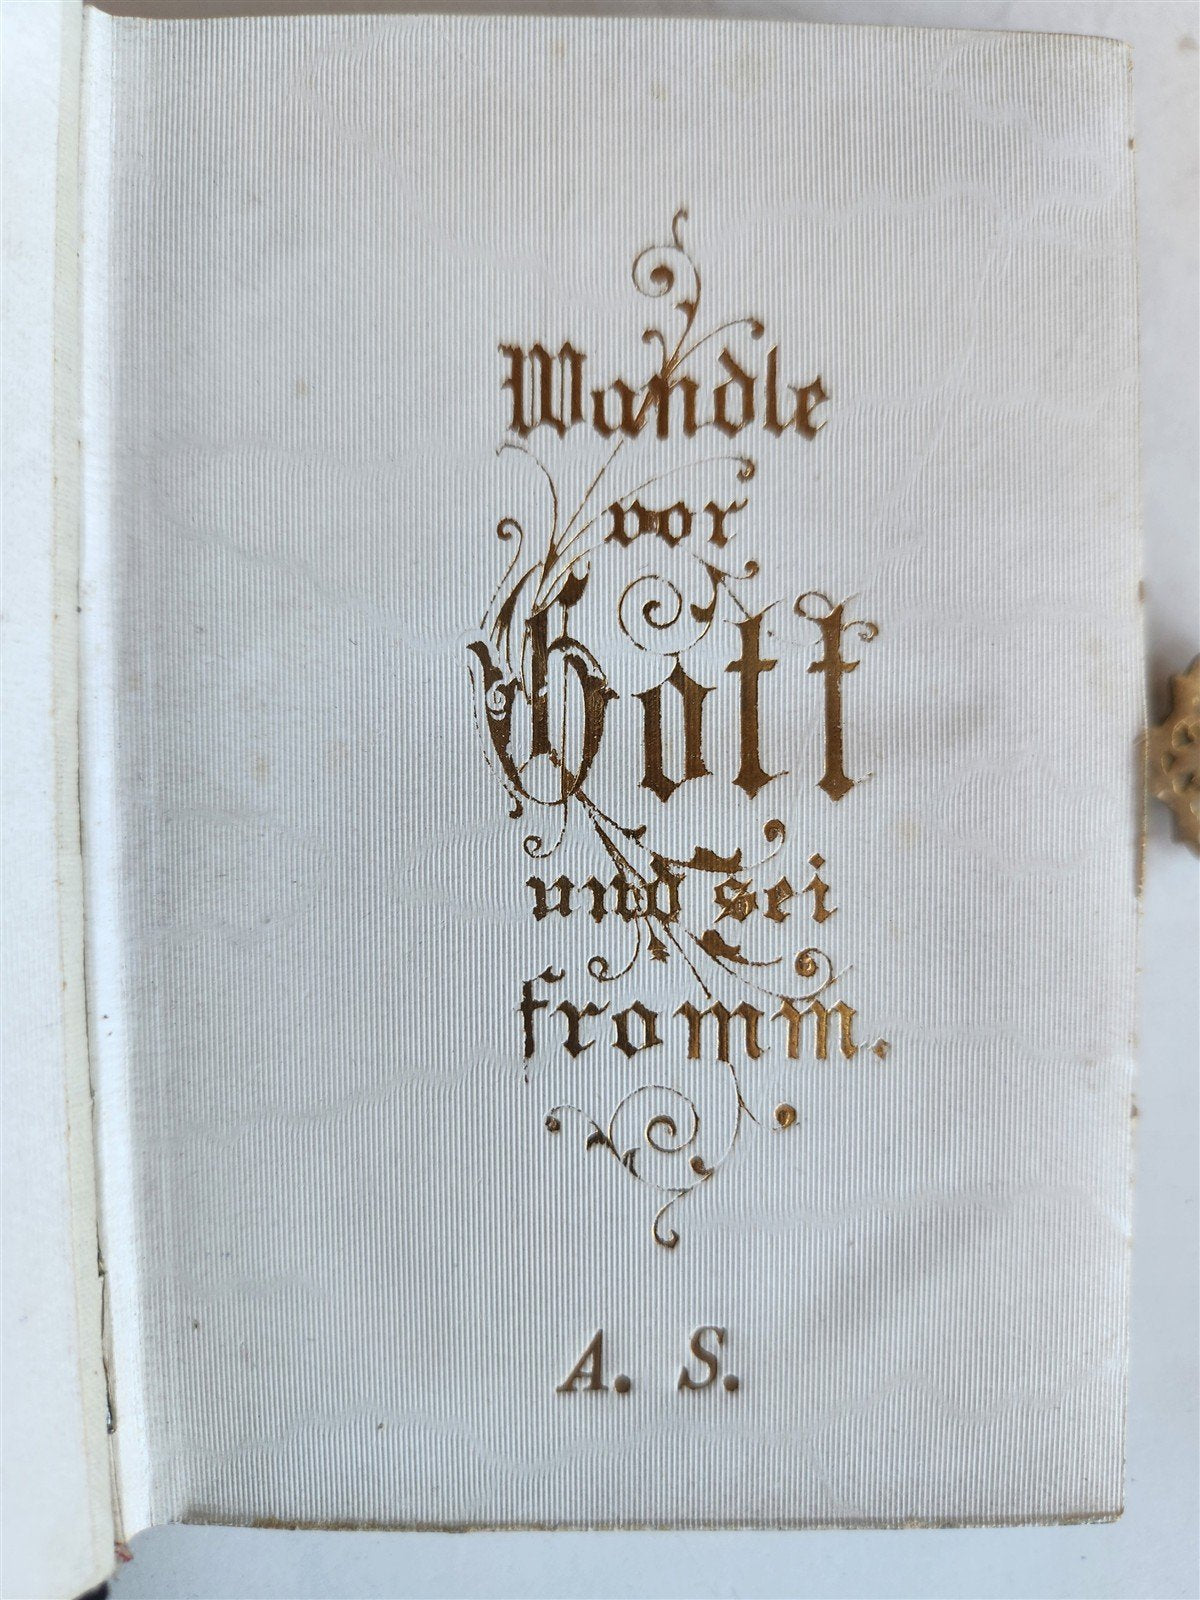 Wandle
vor
Gott
und sei
fromm.
A. S.